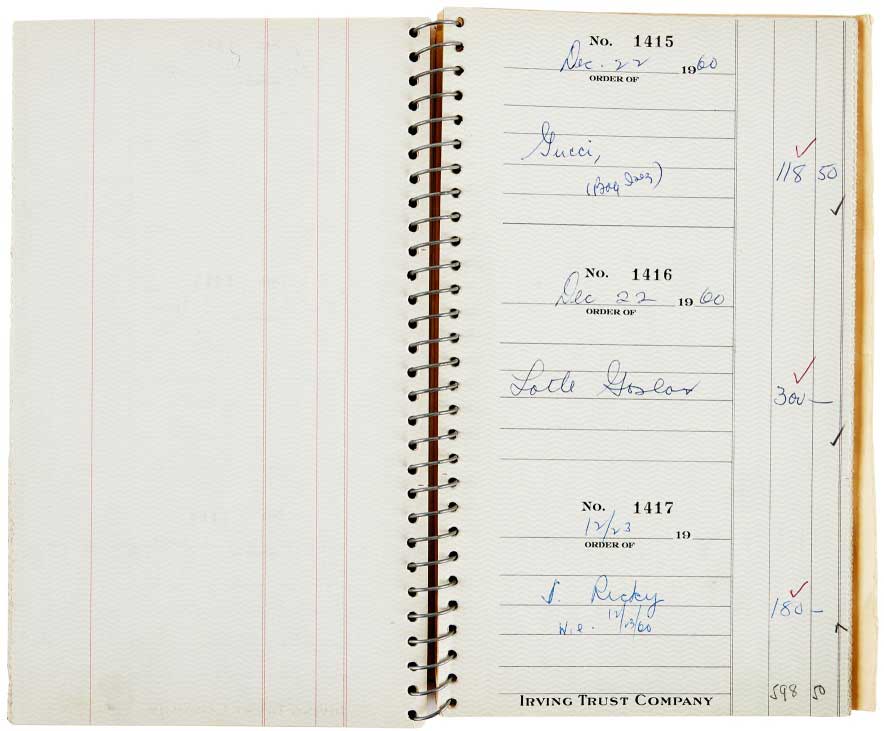 No. 1415
Dec. 22 1960
ORDER OF
Gucci,
118 50
No. 1416
Dec 22 1960
ORDER OF
Lotte Goslar
300 —
No. 1417
12/23 19
ORDER OF
Ricky
180 —
W.E. 12/23/60
598 50
IRVING TRUST COMPANY